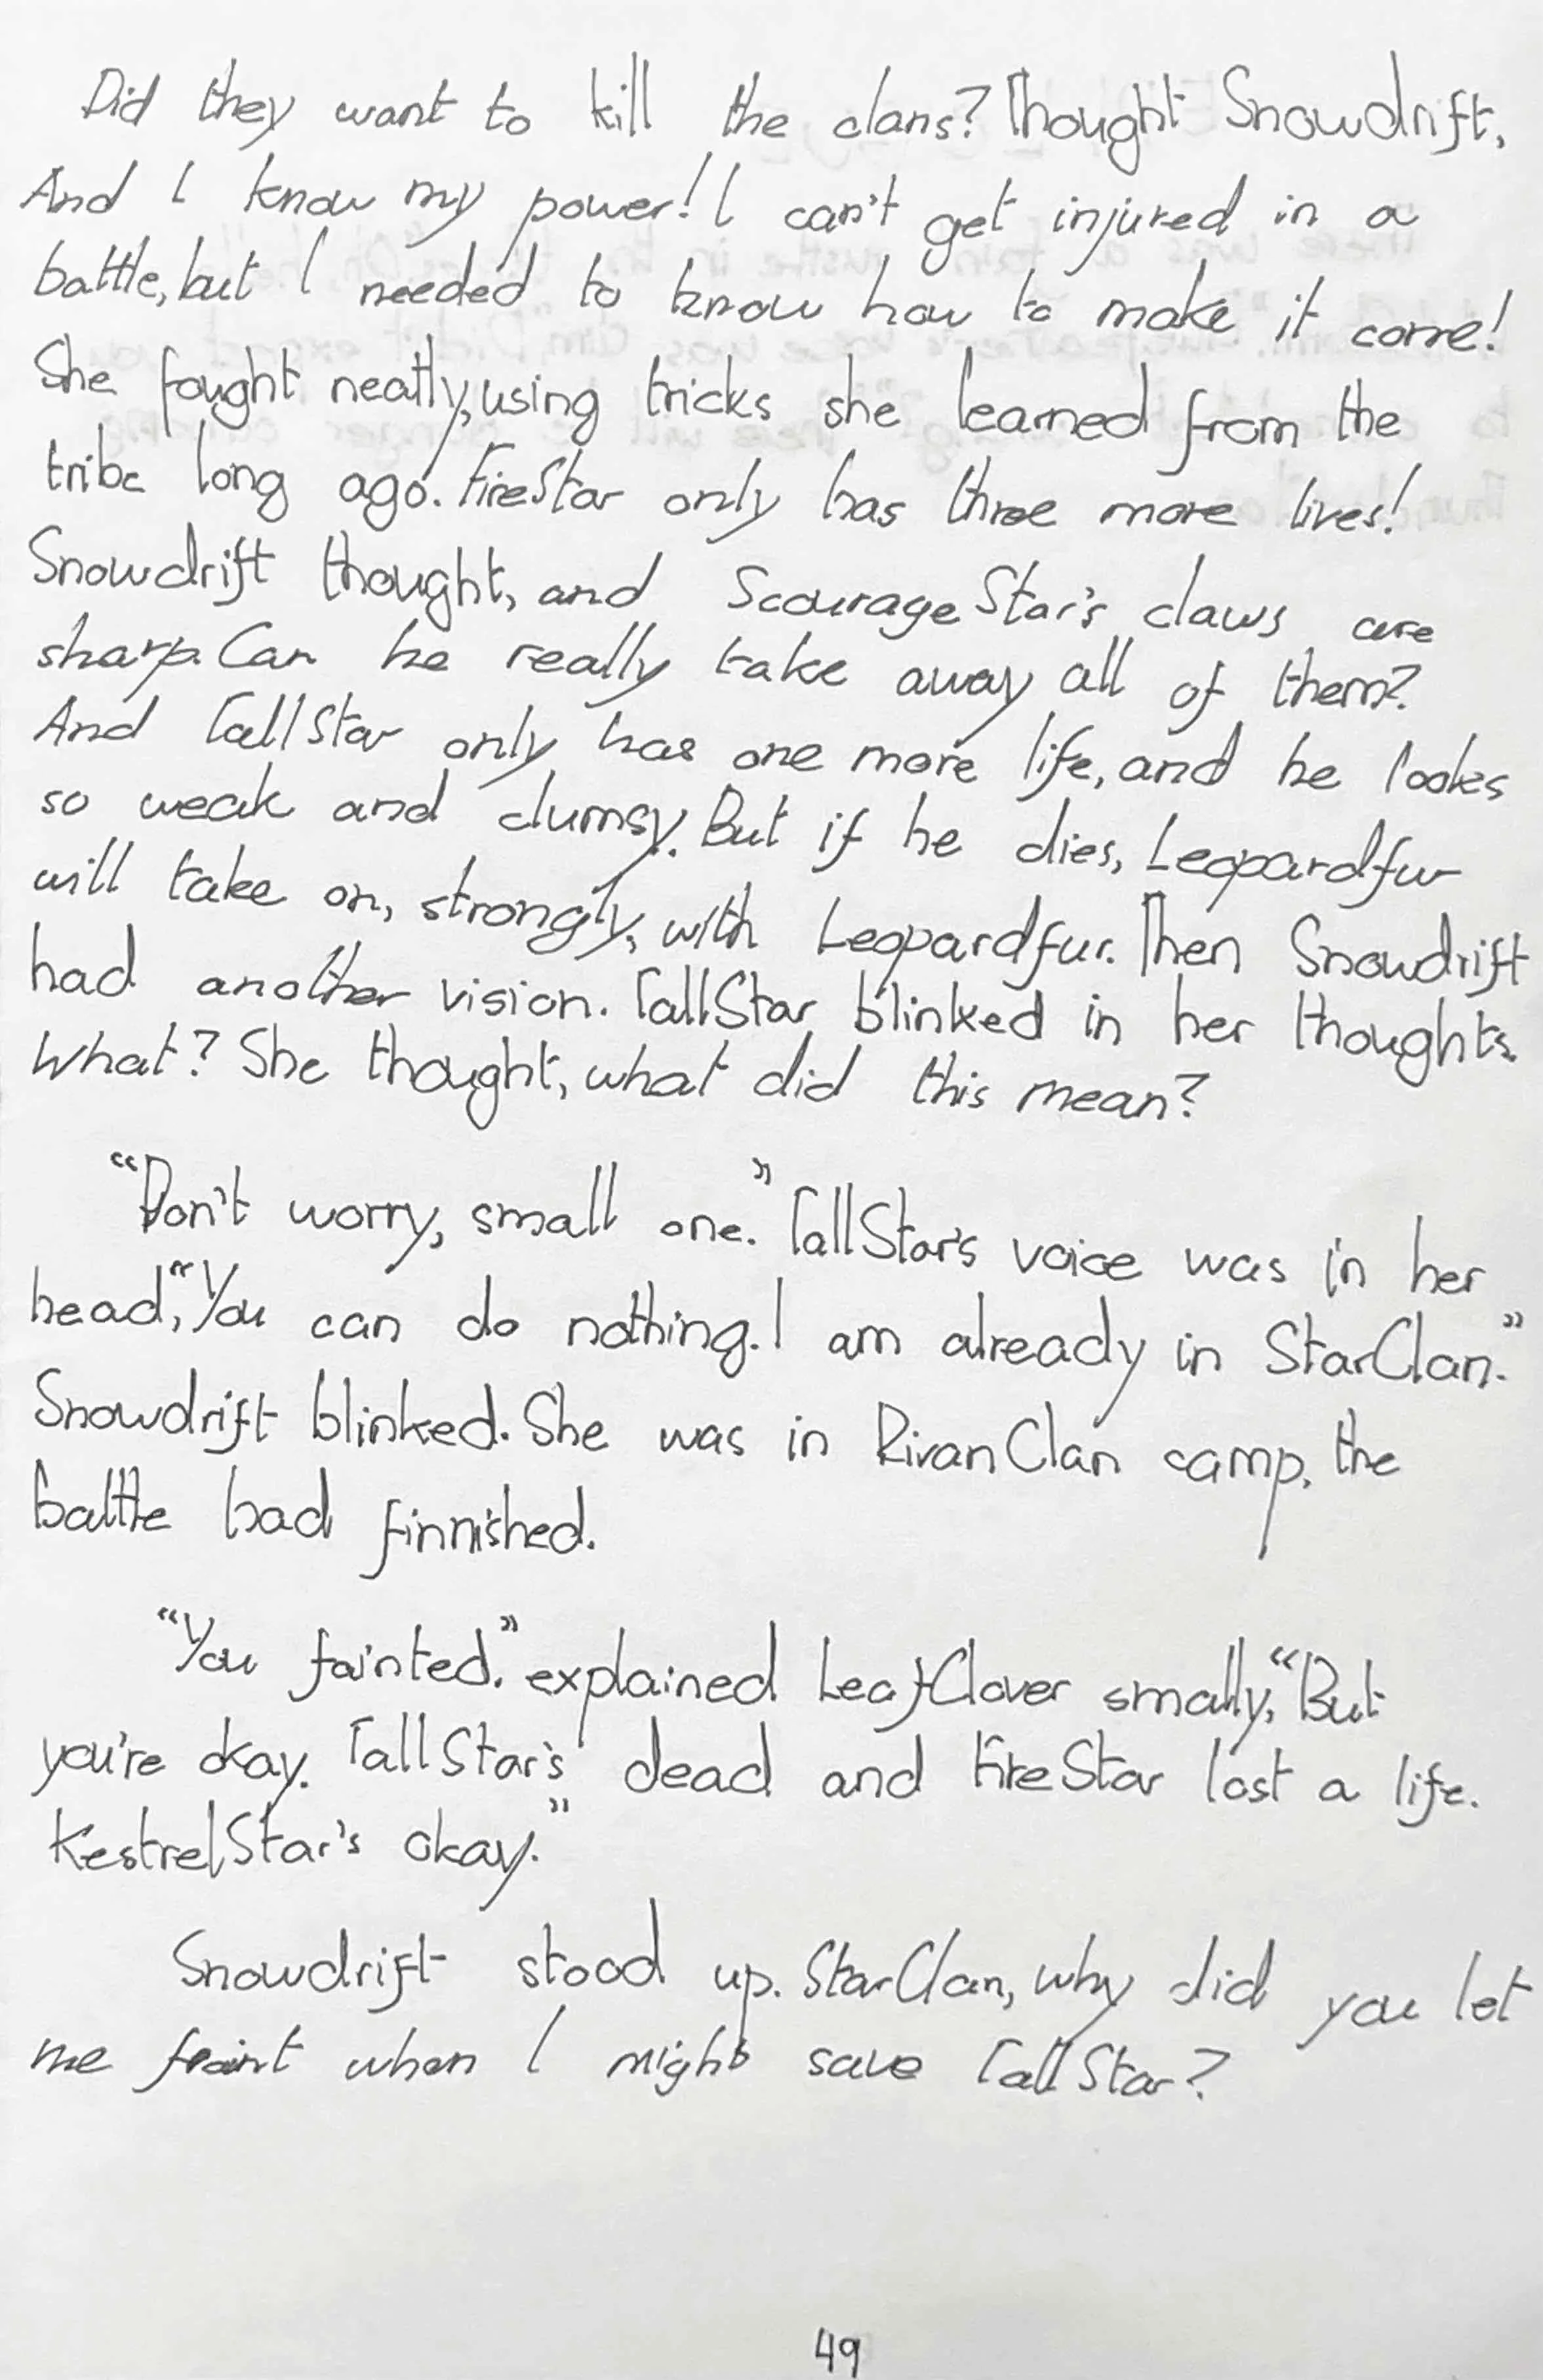 Did they want to kill the clans? Thought Snowdrift,
And I know my power! I can't get injured in a
battle, but I needed to know how to make it come!
She fought neatly, using tricks she learned from the
tribe long ago. FireStar only has three more lives!
Snowdrift thought, and ScourageStar's claws are
sharp. Can he really take away all of them?
And TallStar only has one more life, and he lookes
so weak and clumsy. But if he dies, Leopardfur
will take on, strongly, with Leopardfur. Then Snowdrift
had another vision. TallStar blinked in her thoughts.
What? She thought, what did this mean?
"Don't worry, small one." TallStar's voice was in her
head, "You can do nothing. I am already in StarClan."
Snowdrift blinked. She was in RivanClan camp, the
battle had finnished.
"You fainted." explained LeafClover smally, "But
you're okay. TallStar's dead and FireStar lost a life.
KestrelStar's okay."
Snowdrift stood up. StarClan, why did you let
me faint when I might save TallStar?
49